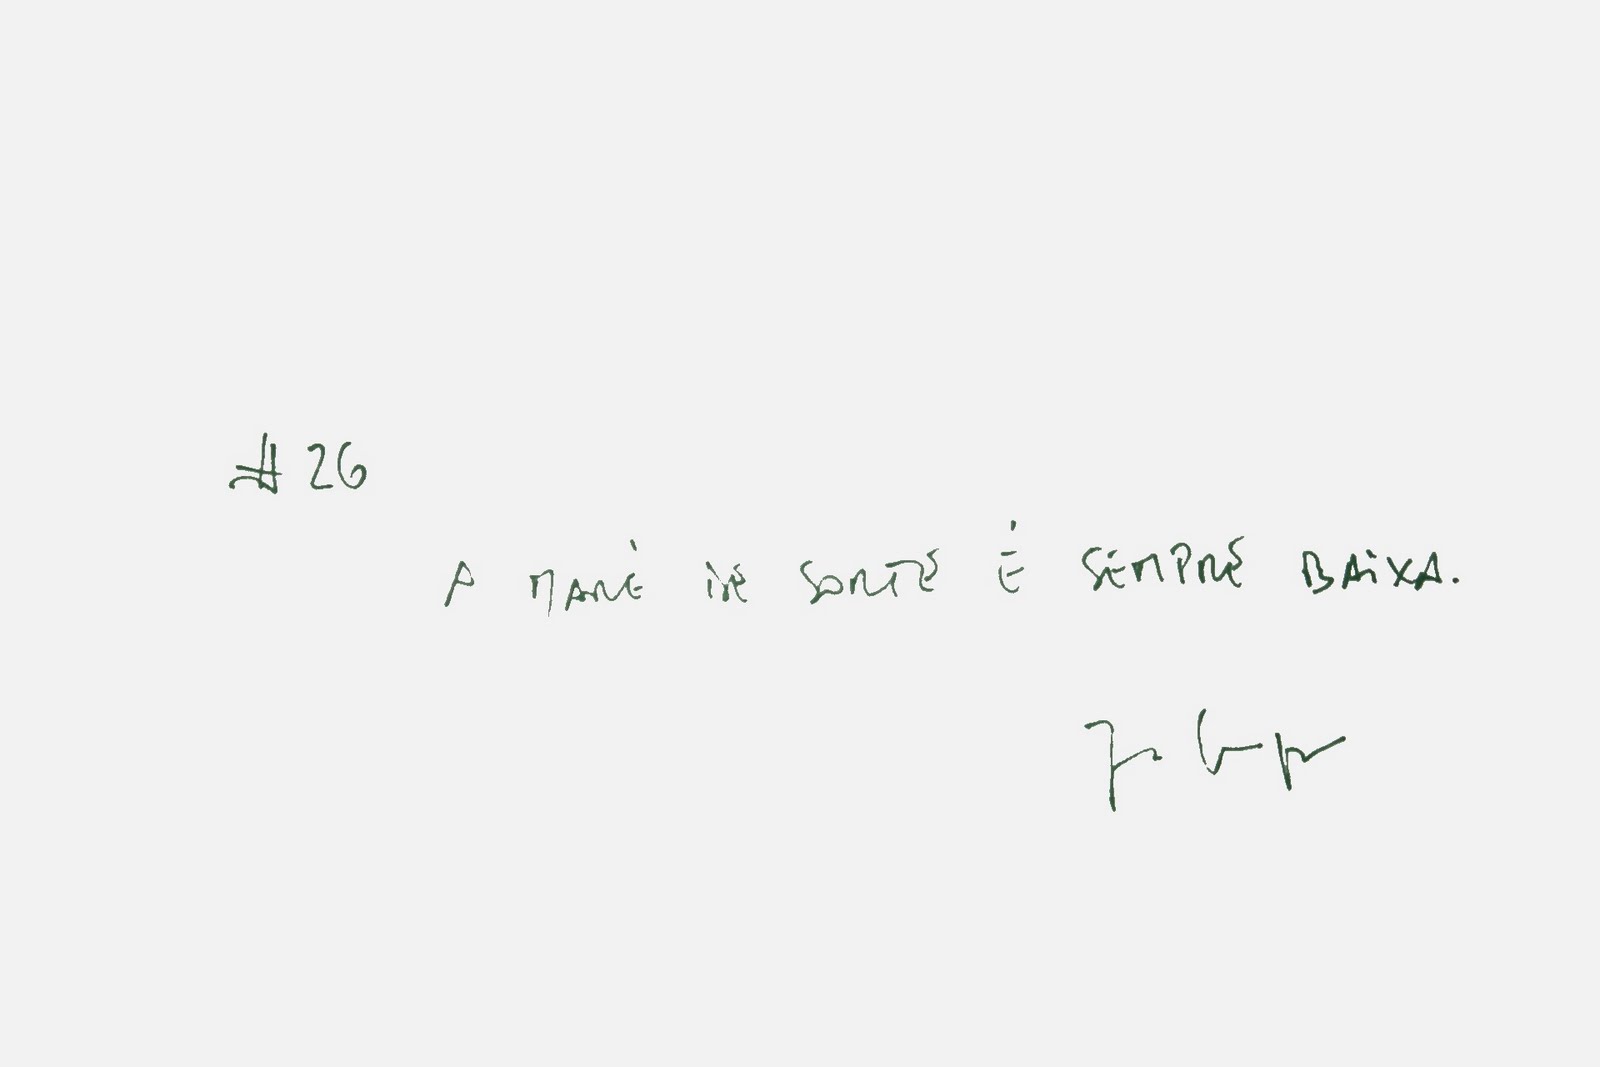 # 26
A MARÉ DE SORTE É SEMPRE BAIXA.